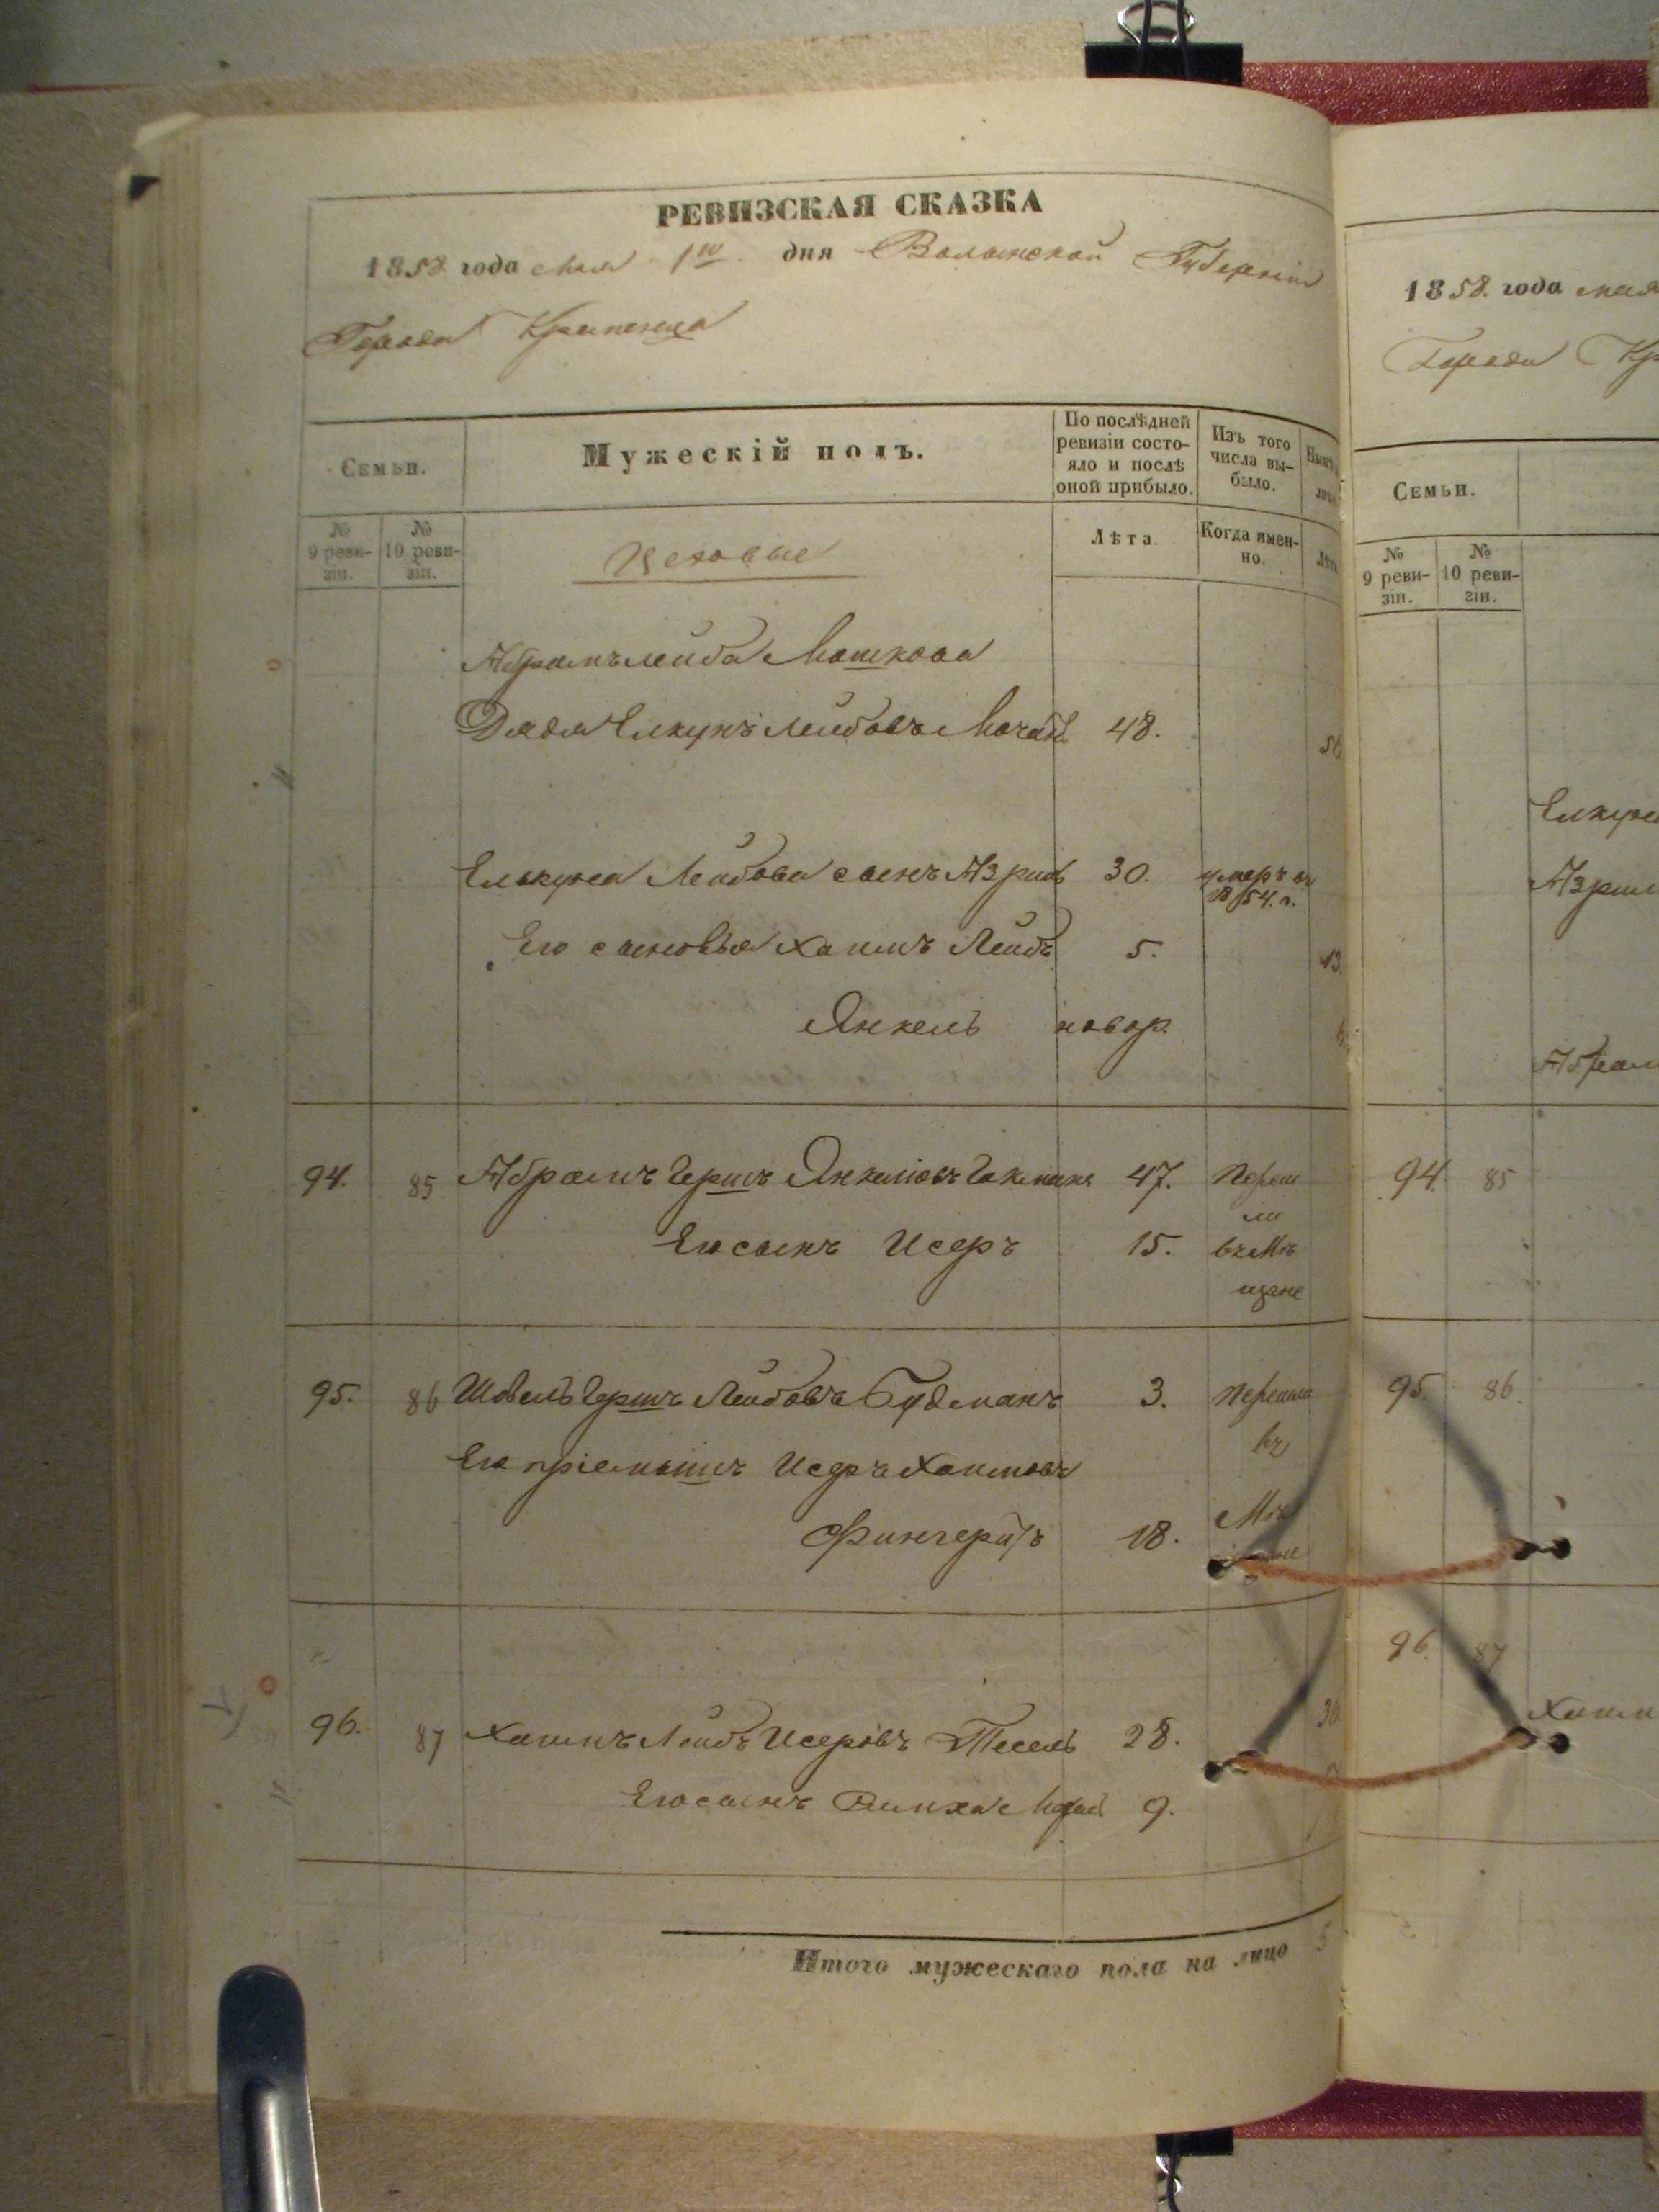 РЕВИЗСКАЯ СКАЗКА
1858 года мая 1го дня Волынской Губерніи
Города Кременца
Семьи.
Мужескій полъ.
По послѣдней ревизіи состо-
яло и послѣ
оной прибыло.
Изъ того
числа вы-
было.
№
9 реви-
зіи.
№
10 реви-
зіи.
Цеховые
Лѣта.
Когда имен-
но.
Лѣта
Абрамъ Лейба Мошкова
Дядя Елкунъ Лейбовъ 48.
Елькуна Лейбова сынъ Азриль 30. умеръ въ
1854. г.
Его сыновья Хаимъ Лейбъ 5. 13.
Янкель новор.
94. 85 Абрамъ Гершъ Янкеліовъ 47. Переш
ли
Его сынъ Исеръ 15. въ Мѣ
щане
95. 86 Шовель Гершъ Лейбовъ Гудманъ 3. Перешли
въ
Его пріемышъ Исеръ Хаимовъ
18. Мѣ
щане
96. 87 Хаимъ Лейбъ Исеровъ Тесель 28.
Его сынъ Симха 9.
Итого мужескаго пола на лицо 5
1858. года мая
Города Кр
Семьи.
№
9 реви-
зіи.
№
10 реви-
зіи.
Елкуна
Азрил
Абрам
94. 85
95. 86.
96. 87
Хаим